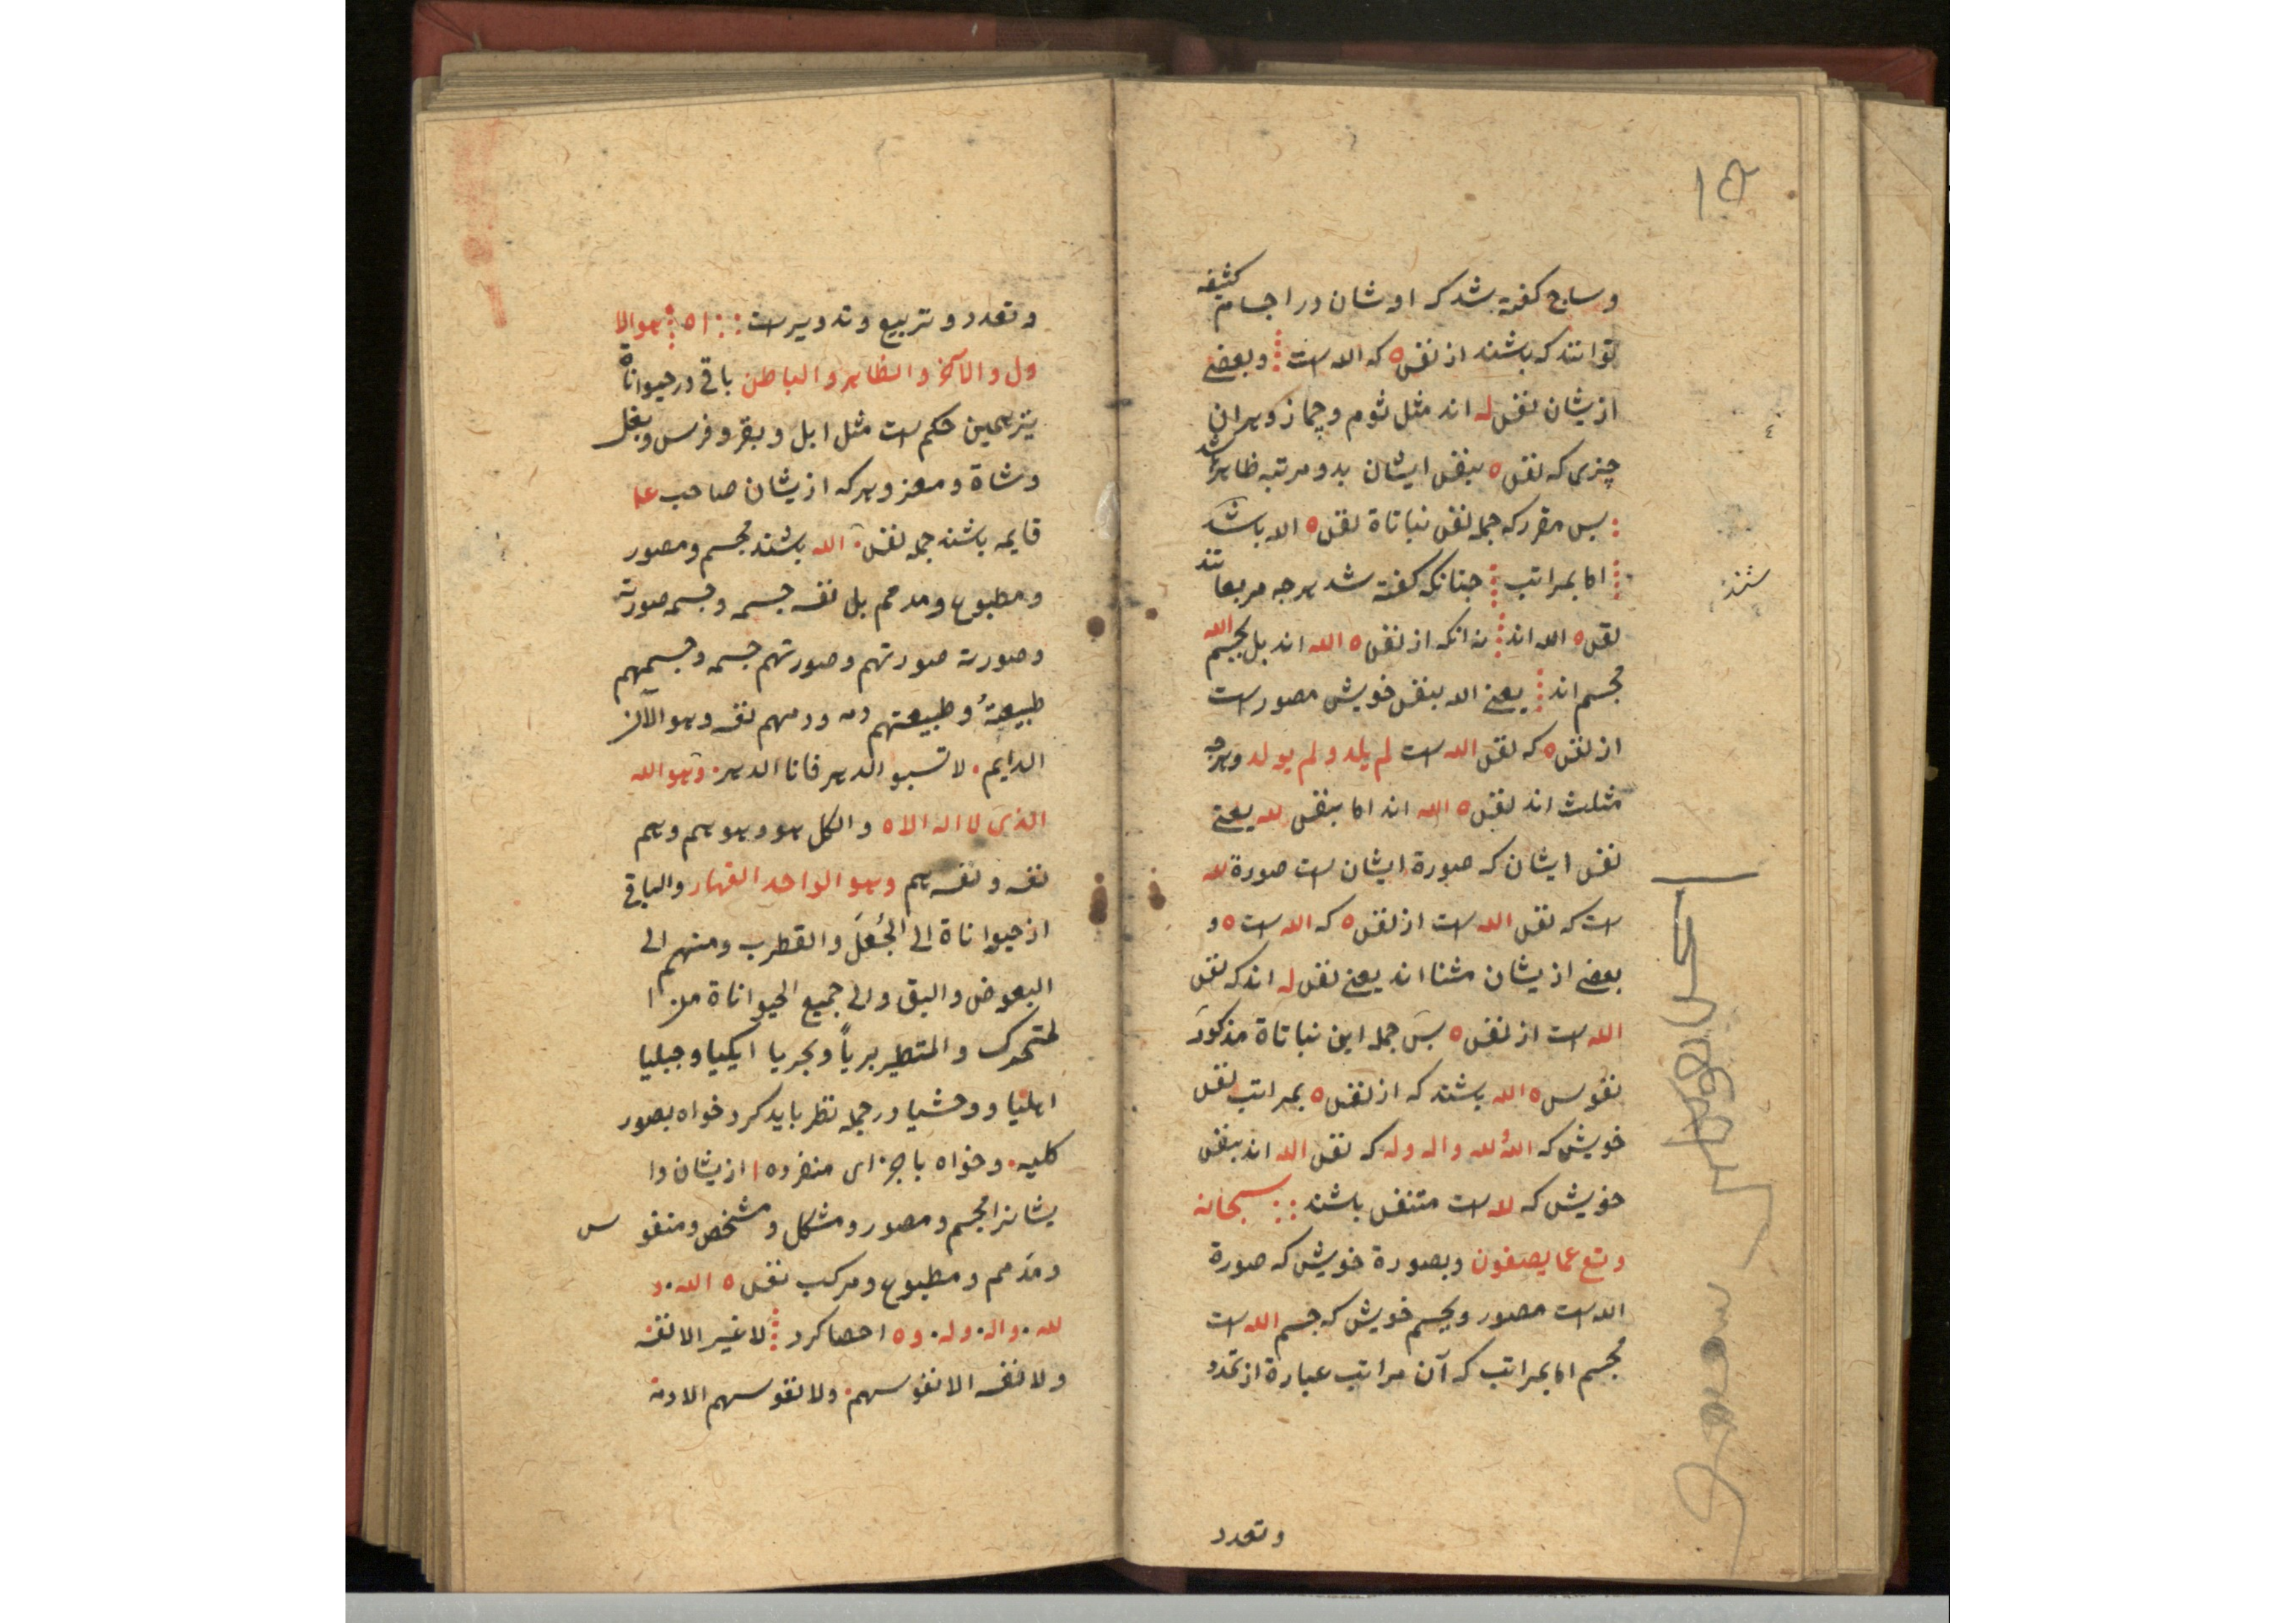 وساج كفته شد كه اوشان در اجسام كثيفه
توانند كه باشند از نفس ه كه الله ست ⁝ وبعضے
از يشان نفس له اند مثل ثوم و چماز و هران
چيزى كه نفس ه بنفس ايشان بدو مرتبه ظاهر شد
⁝ پس مقرر كه جمله نفس نباتاة نفس ه الله باشند
⁝ اما بمراتب ⁝ جنانكه كفته شد هرجه مربعا تند
نفس ه الله اند ⁝ نه انكه از نفس ه الله اند بل بجسم الله
مجسم اند ⁝ يعنے الله بنفس خويش مصور ست
از نفس ه كه نفس الله ست لم يلد ولم يولد وهرجه
مثلث اند نفس ه الله اند اما بنفس لله يعنے
نفس ايشان كه صورة ايشان ست صورة لله
ست كه نفس الله ست از نفس ه كه الله ست ه و
بعضے از يشان مثنا اند يعنے نفس له اند كه نفس
الله ست از نفس ه پس جمله اين نباتاة مذكور
نفوس ه الله باشند كه از نفس ه بمراتب نفس
خويش كه الله و لله واله وله كه نفس الله اند بنفس
خويش كه لله ست متنفس باشند ∴ سبحانه
وتع عما يصفون وبصورة خويش كه صورة
الله ست مصور وبجسم خويش كه جسم الله ست
مجسم اما بمراتب كه آن مراتب عبارة از تمدد
وتعدد
وتعدد و تربيع و تدوير ست ∴ اه ⁝ هو الا
ول والآخر والظاهر والباطن باقى در حيواناة
نيز همين حكم ست مثل ابل و بقر و فرس و بغل
و شاة و معز و هركه از يشان صاحب علا
قايمه باشند جمله نفس ه الله باشند مجسم و مصور
و مطبوع و مدمم بل نفسه جسمه و جسمه صورته
و صورته صورتهم و صورتهم جسمه و جسمهم
طبيعة و طبيعتهم دمه و دمهم نفسه وهو الآن
الدايم. لا تسبوا الدهر فانا الدهر. وهو الله
الذى لا اله الا ه والكل هو وهو هم وهم
نفسه و نفسه هم وهو الواحد القهار والباقى
از حيواناة الى الجُعَل والقطرب ومنهم الى
البعوض والبق والى جميع الحيواناة من ا
لمتحرك والمتطير برياً وبحريا ايكيا وجبليا
اهليا و وحشيا در جمله نظر بايد كرد خواه بصور
كليه. وخواه باجزاى منفرده از يشان وا
يشانرا مجسم و مصور و مشكل و مشخص و منفو س
و مدمم و مطبوع و مركب نفس ه الله. و
لله. واله. وله. و ه احصا كرد ⁝ لا غير الا نفسه
ولا نفسه الا نفوسهم. ولا نفوسهم الا دمه